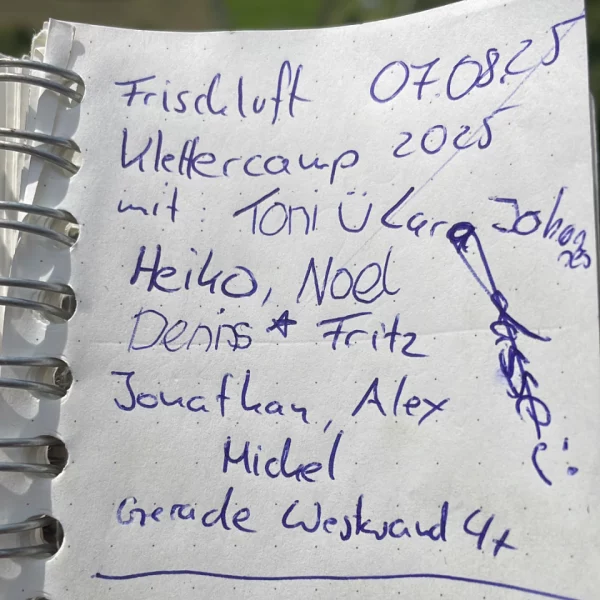 Frischluft 07.08.25
Klettercamp 2025
mit: Toni Ü Lara Johannes
Heiko, Noel
Denis * Fritz
Jonathan, Alex
Michel
Gerade Westwand 4+